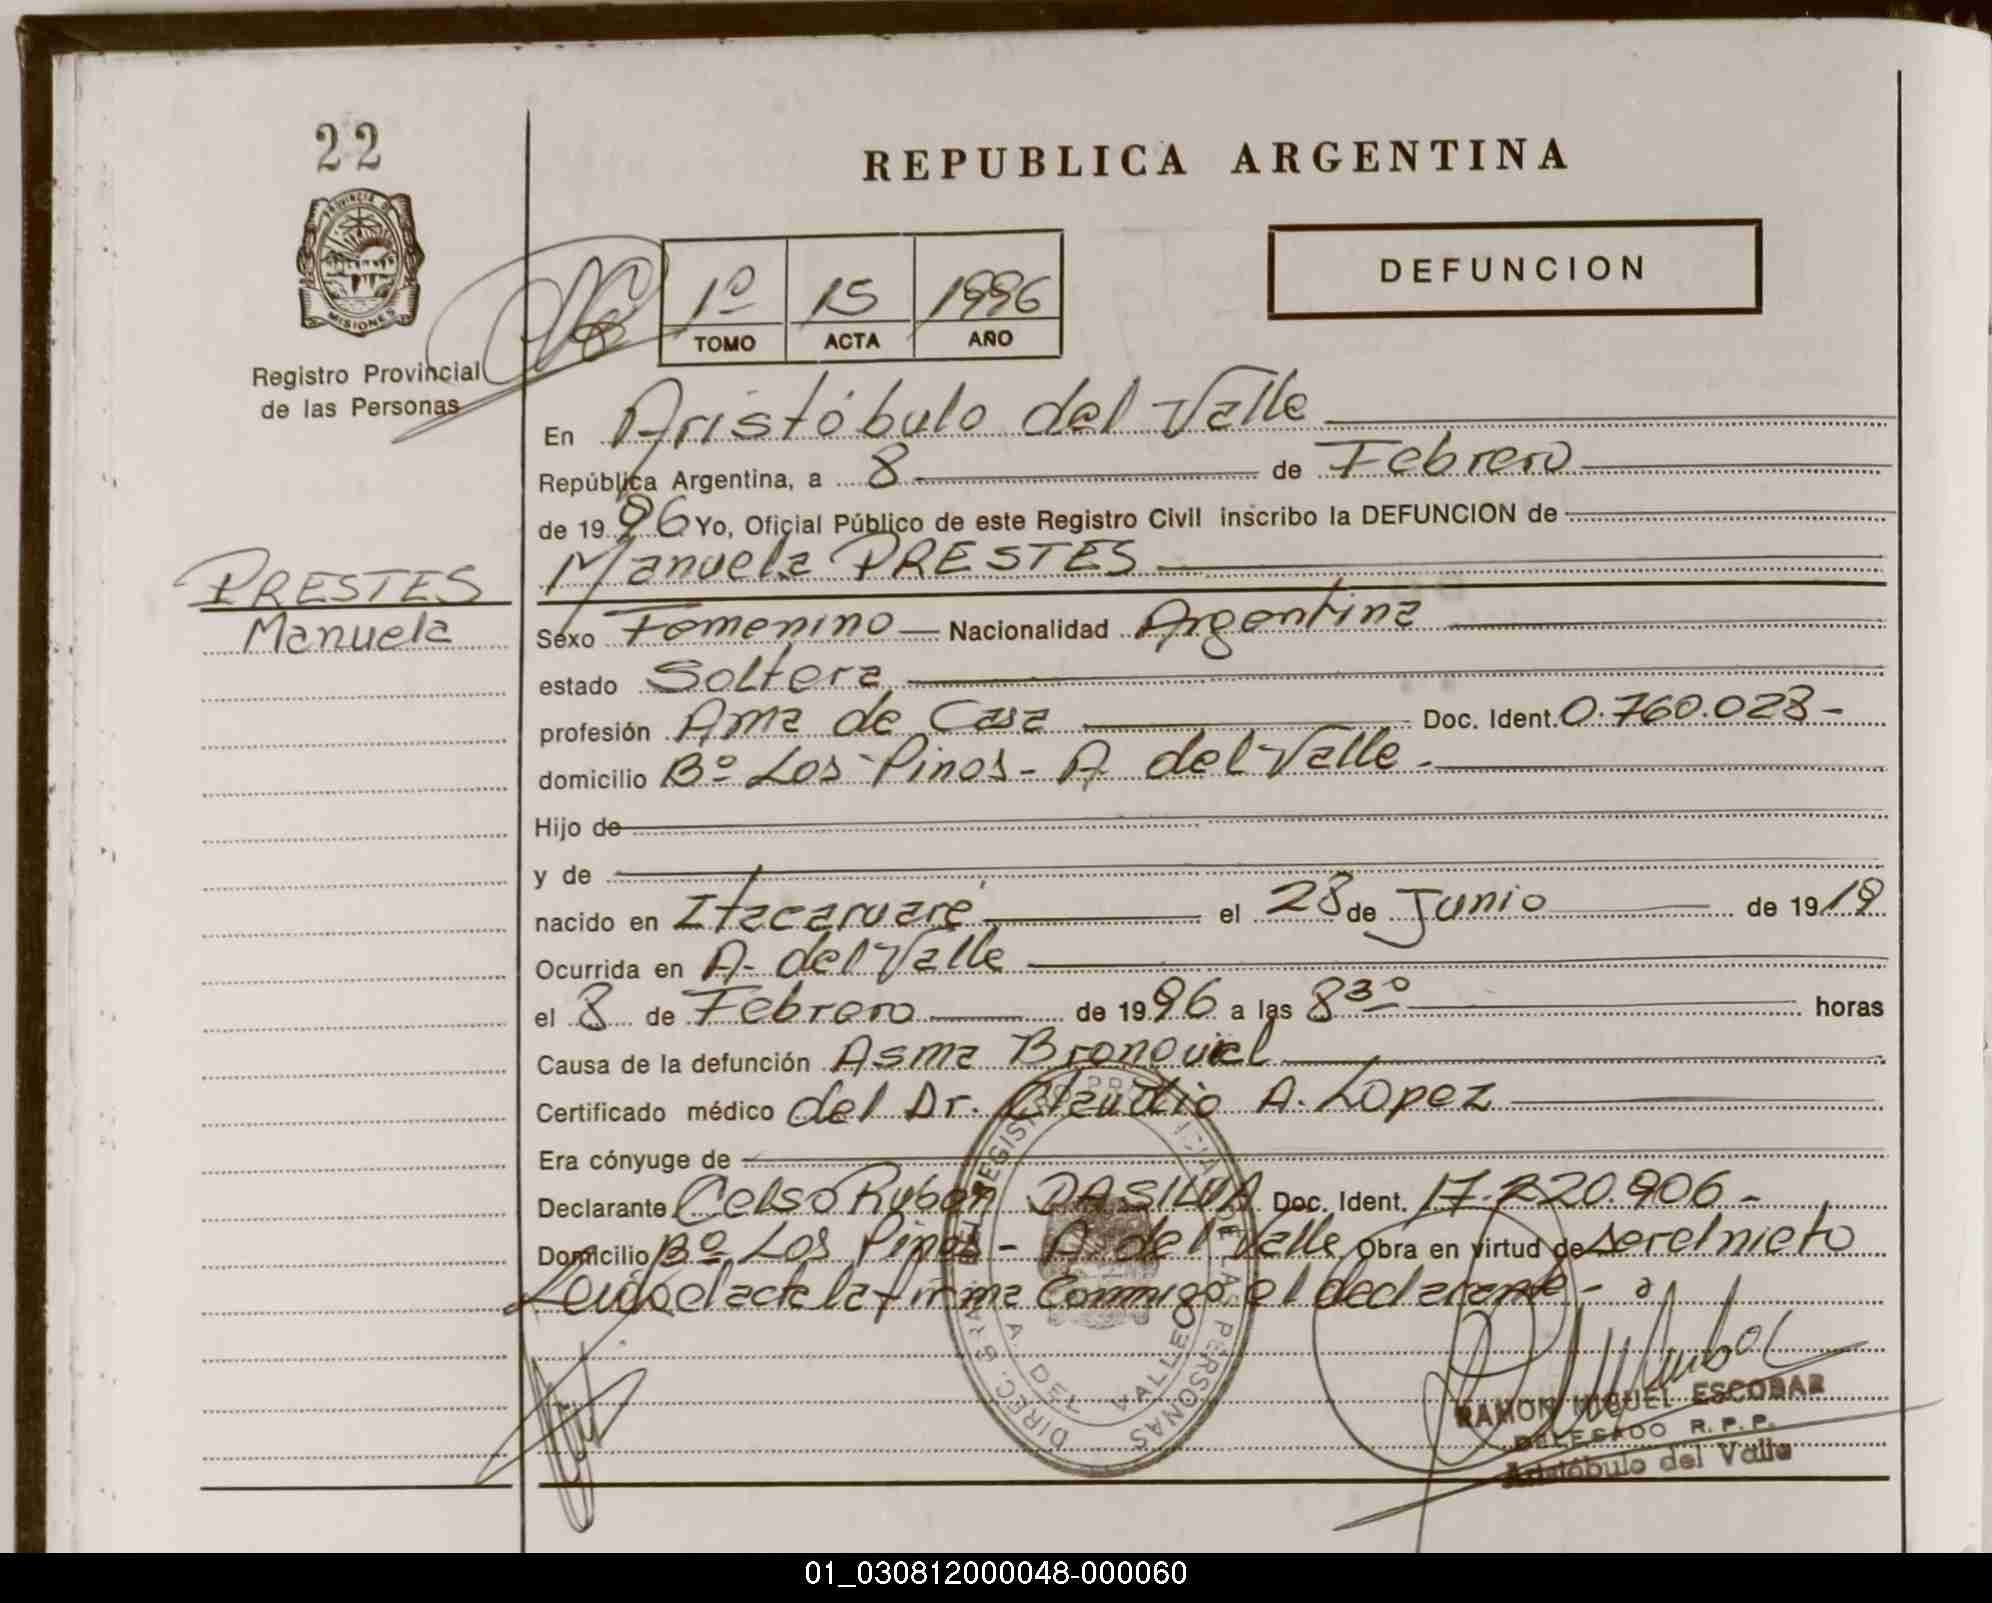 22
REPUBLICA ARGENTINA
PROVINCIA DE
MISIONES
Registro Provincial
de las Personas
1º 15 1996
TOMO ACTA AÑO
DEFUNCION
En Aristóbulo del Valle
República Argentina, a 8 de Febrero
de 1996 Yo, Oficial Público de este Registro Civil inscribo la DEFUNCION de
Manuela PRESTES
PRESTES
Manuela
Sexo Femenino Nacionalidad Argentina
estado Soltera
profesión Ama de Casa Doc. Ident. 0.760.028-
domicilio Bº Los Pinos - A. del Valle -
Hijo de
y de
nacido en Itacaruaré el 28 de Junio de 1919
Ocurrida en A. del Valle
el 8 de Febrero de 1996 a las 8 30 horas
Causa de la defunción Asma Bronquial
Certificado médico del Dr. Claudio A. Lopez
Era cónyuge de
Declarante Celso Ruben DA SILVA Doc. Ident. 17.220.906-
Domicilio Bº Los Pinos - A. del Valle Obra en virtud de ser el nieto
Leida el acta la firma Conmigo el declarante -
DIREC. GRAL. DEL REGISTRO PROVINCIAL DE LAS PERSONAS
A. DEL VALLE
RAMON MIGUEL ESCOBAR
DELEGADO R. P. P.
Aristóbulo del Valle
01_030812000048-000060